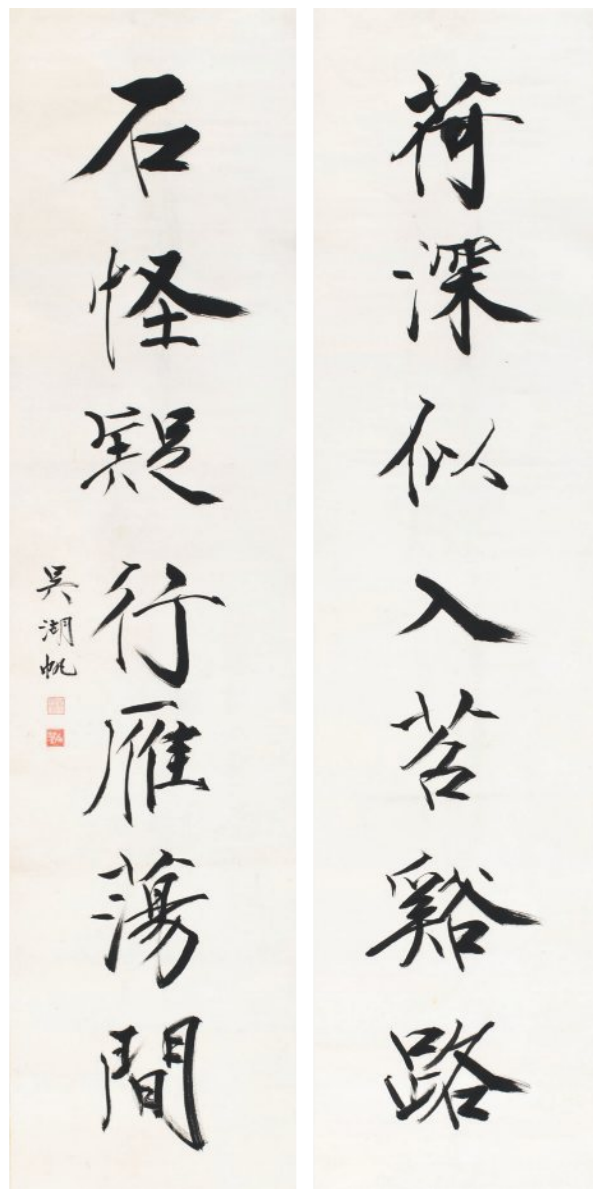 荷深似入苕谿路
石怪疑行雁蕩間
吳湖帆